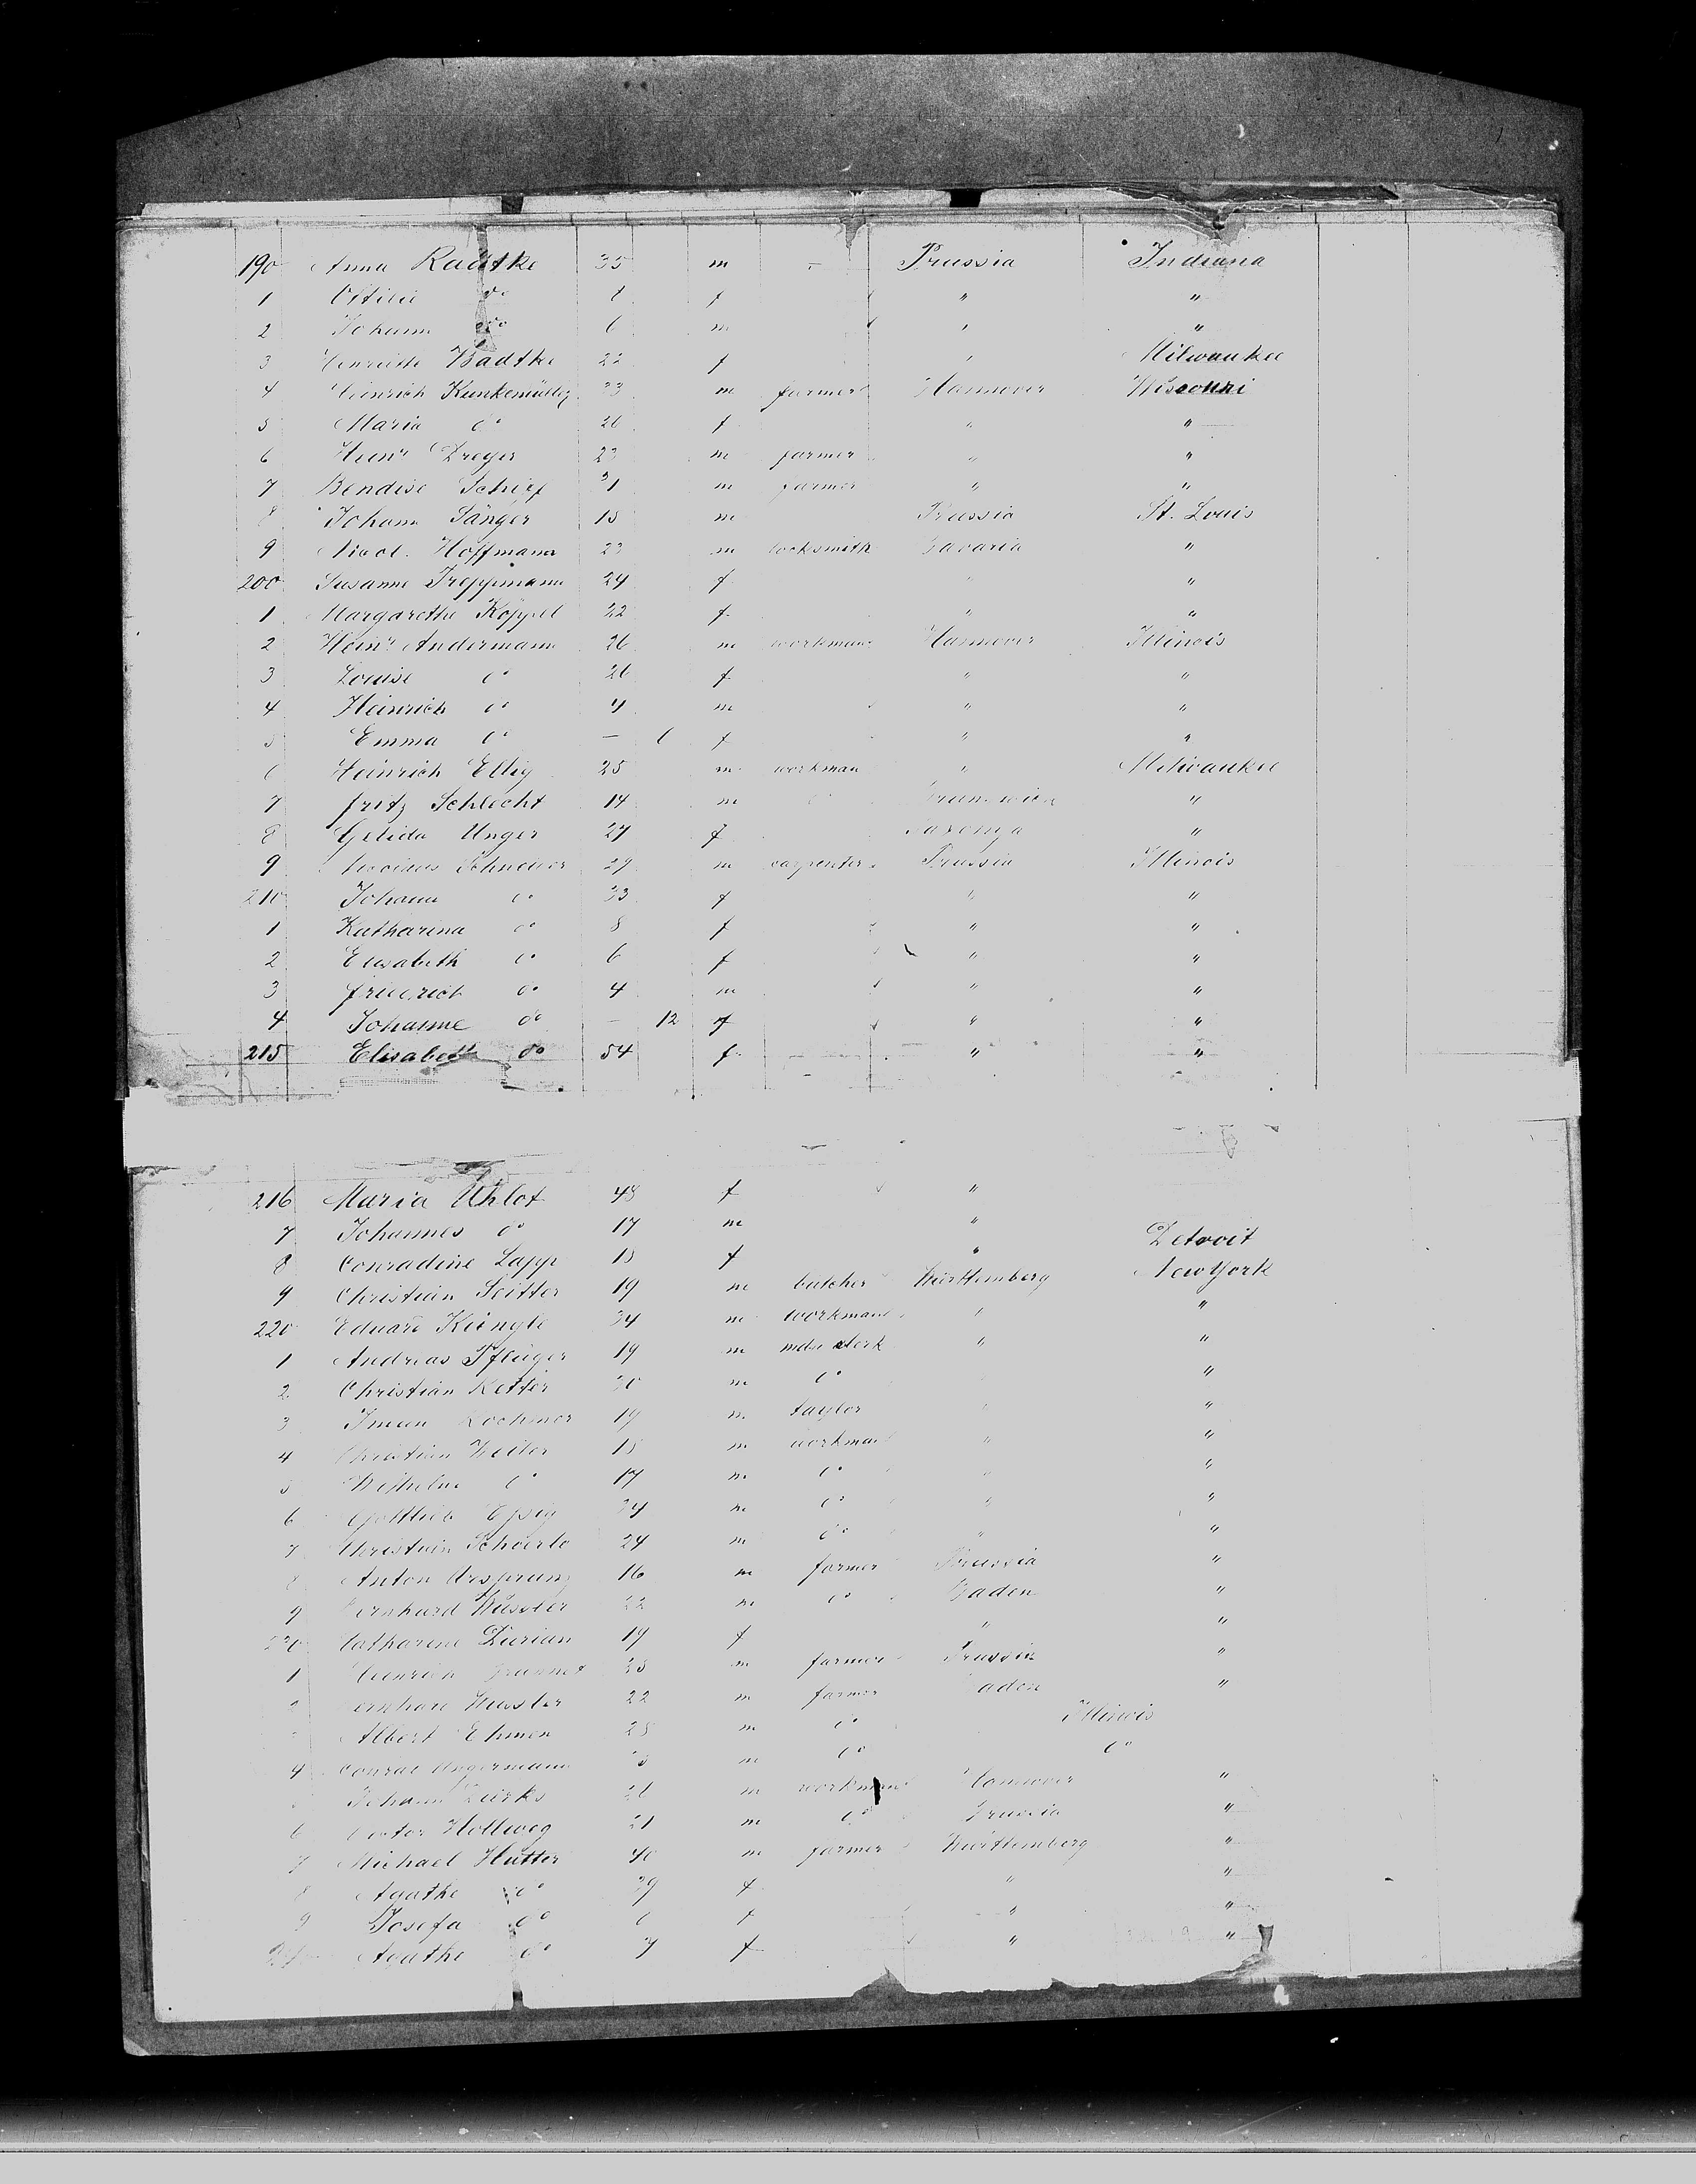 190 Anna Radtke 35 m – Prussia Indiana
1 Ottilie do f " "
2 Johann do 6 m " "
3 Henriette Badtke 22 f " Milwaukee
4 Heinrich Kunkemüller 33 m farmer Hannover
5 Maria do 26 f " "
6 Heinr Dreyer 23 m farmer " "
7 Bendise Schipf 31 m farmer " "
8 Johann Sänger 18 m Prussia St. Louis
9 Nicol. Hoffmann 23 m locksmith Bavaria "
200 Susanne Treppmann 24 f " "
1 Margarethe Köppel 22 f " "
2 Heinr Andermann 26 m workman Hannover Illinois
3 Louise do 26 f " "
4 Heinrich do 4 m " "
5 Emma do – 6 f " "
6 Heinrich Ellig 25 m workman " Milwaukee
7 fritz Schlecht 14 m do Brunswick "
8 Unger 27 f Saxonya "
9 29 m carpenter Prussia Illinois
210 Johann do 33 f " "
1 Katharina do 8 f " "
2 Elisabeth do 6 f " "
3 friedrich do 4 m " "
4 Johanne do – 12 f " "
215 Elisabeth do 54 f " "
216 Maria Uhlot 48 f "
7 Johannes do 17 m "
8 Conradine Lapp 18 f " Detroit
9 Christian Seitter 19 m butcher Württemberg New York
220 Eduard Küngle 34 m workman " "
1 Andreas Pflüger 19 m clerk " "
2 Christian Ketter 30 m do "
3 19 m taylor " "
4 Christian Weiler 18 m workman " "
5 Wilhelm do 17 m do " "
6 Gottlieb Epsig 34 m do " "
7 Christian Schoerle 24 m do " "
8 Anton Ursprung 16 m farmer Prussia "
9 Bernhard Wussler 22 m do Baden "
230 Catharine Durian 19 f " "
1 Heinrich 25 m farmer Prussia "
2 Bernhard Wussler 22 m farmer Baden "
Albert Ehmen 28 m do Illinois
4 Conrad Angermann m do do
Johann Dierks 26 m workman Hannover "
6 Hollweg 21 m do Prussia "
7 Michael Hutter 40 m farmer Württemberg "
8 Agathe do 39 f " "
9 Josefa do f " "
240 Agathe do 7 f " "